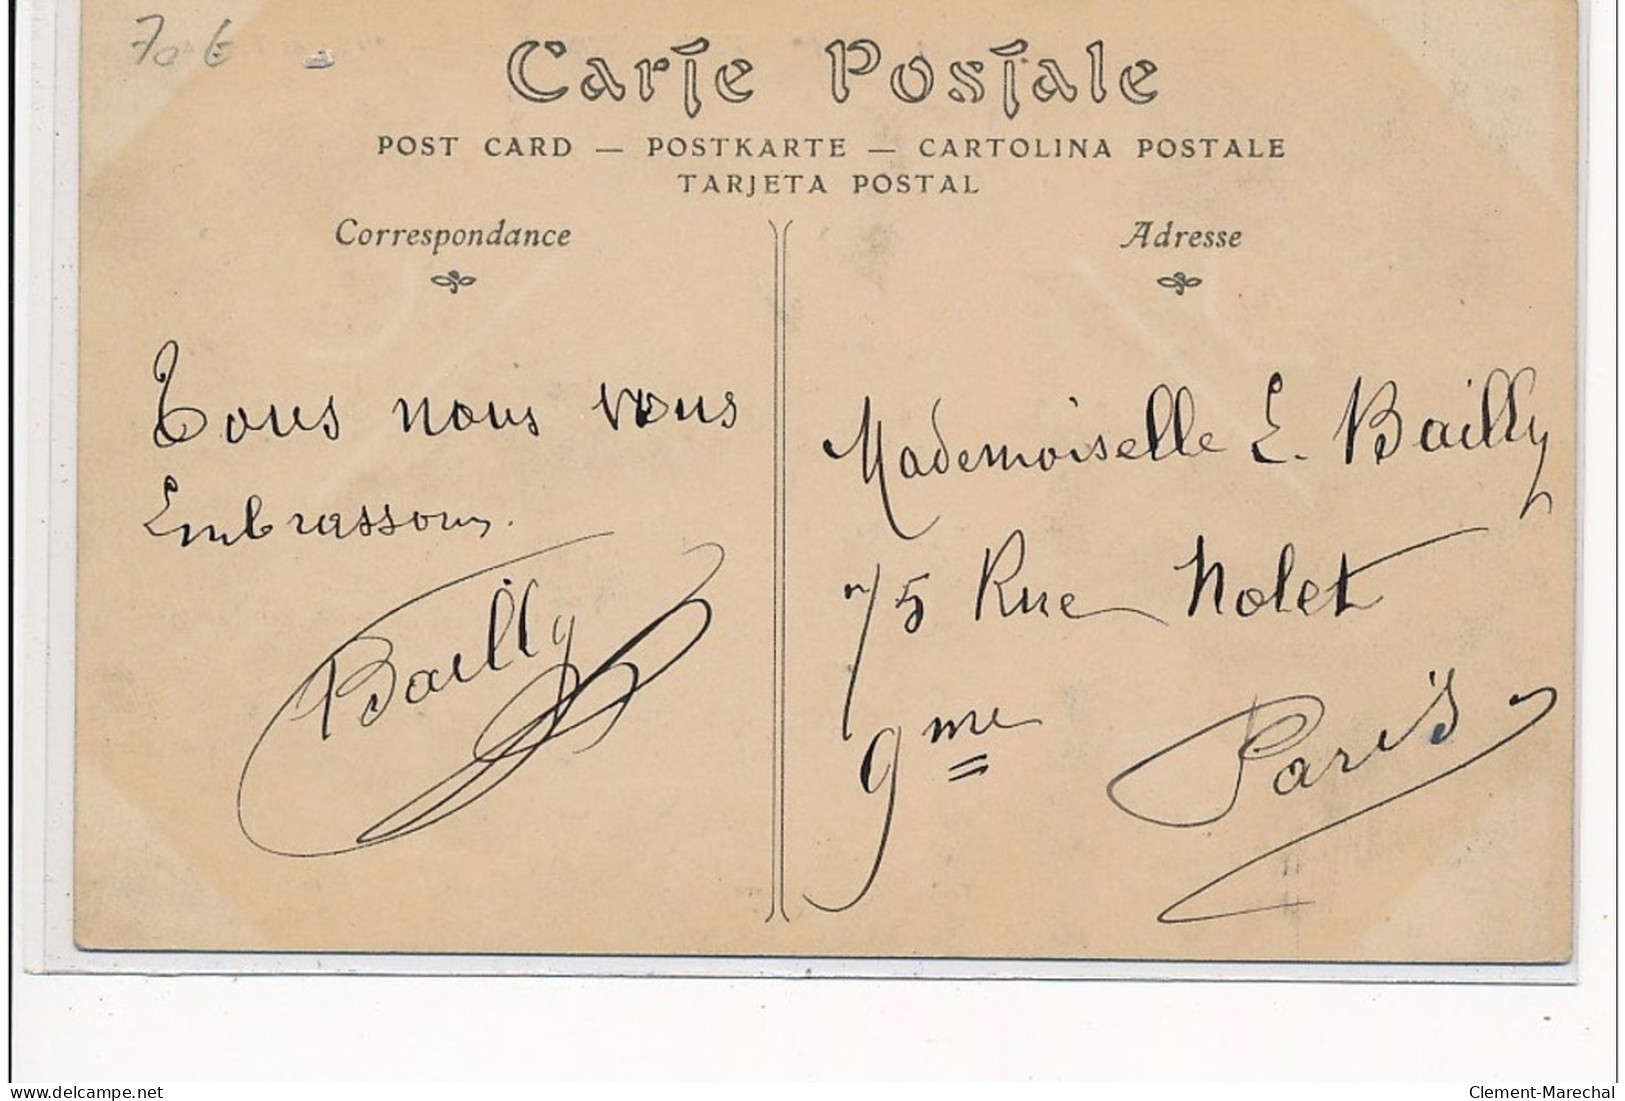 70 €
Carte Postale
POST CARD — POSTKARTE — CARTOLINA POSTALE
TARJETA POSTAL
Correspondance
Tous nous vous
Embrassons.
Bailly
Adresse
Mademoiselle E. Bailly
75 Rue Nolet
9me
Paris
delcampe.net
Clement-Marechal